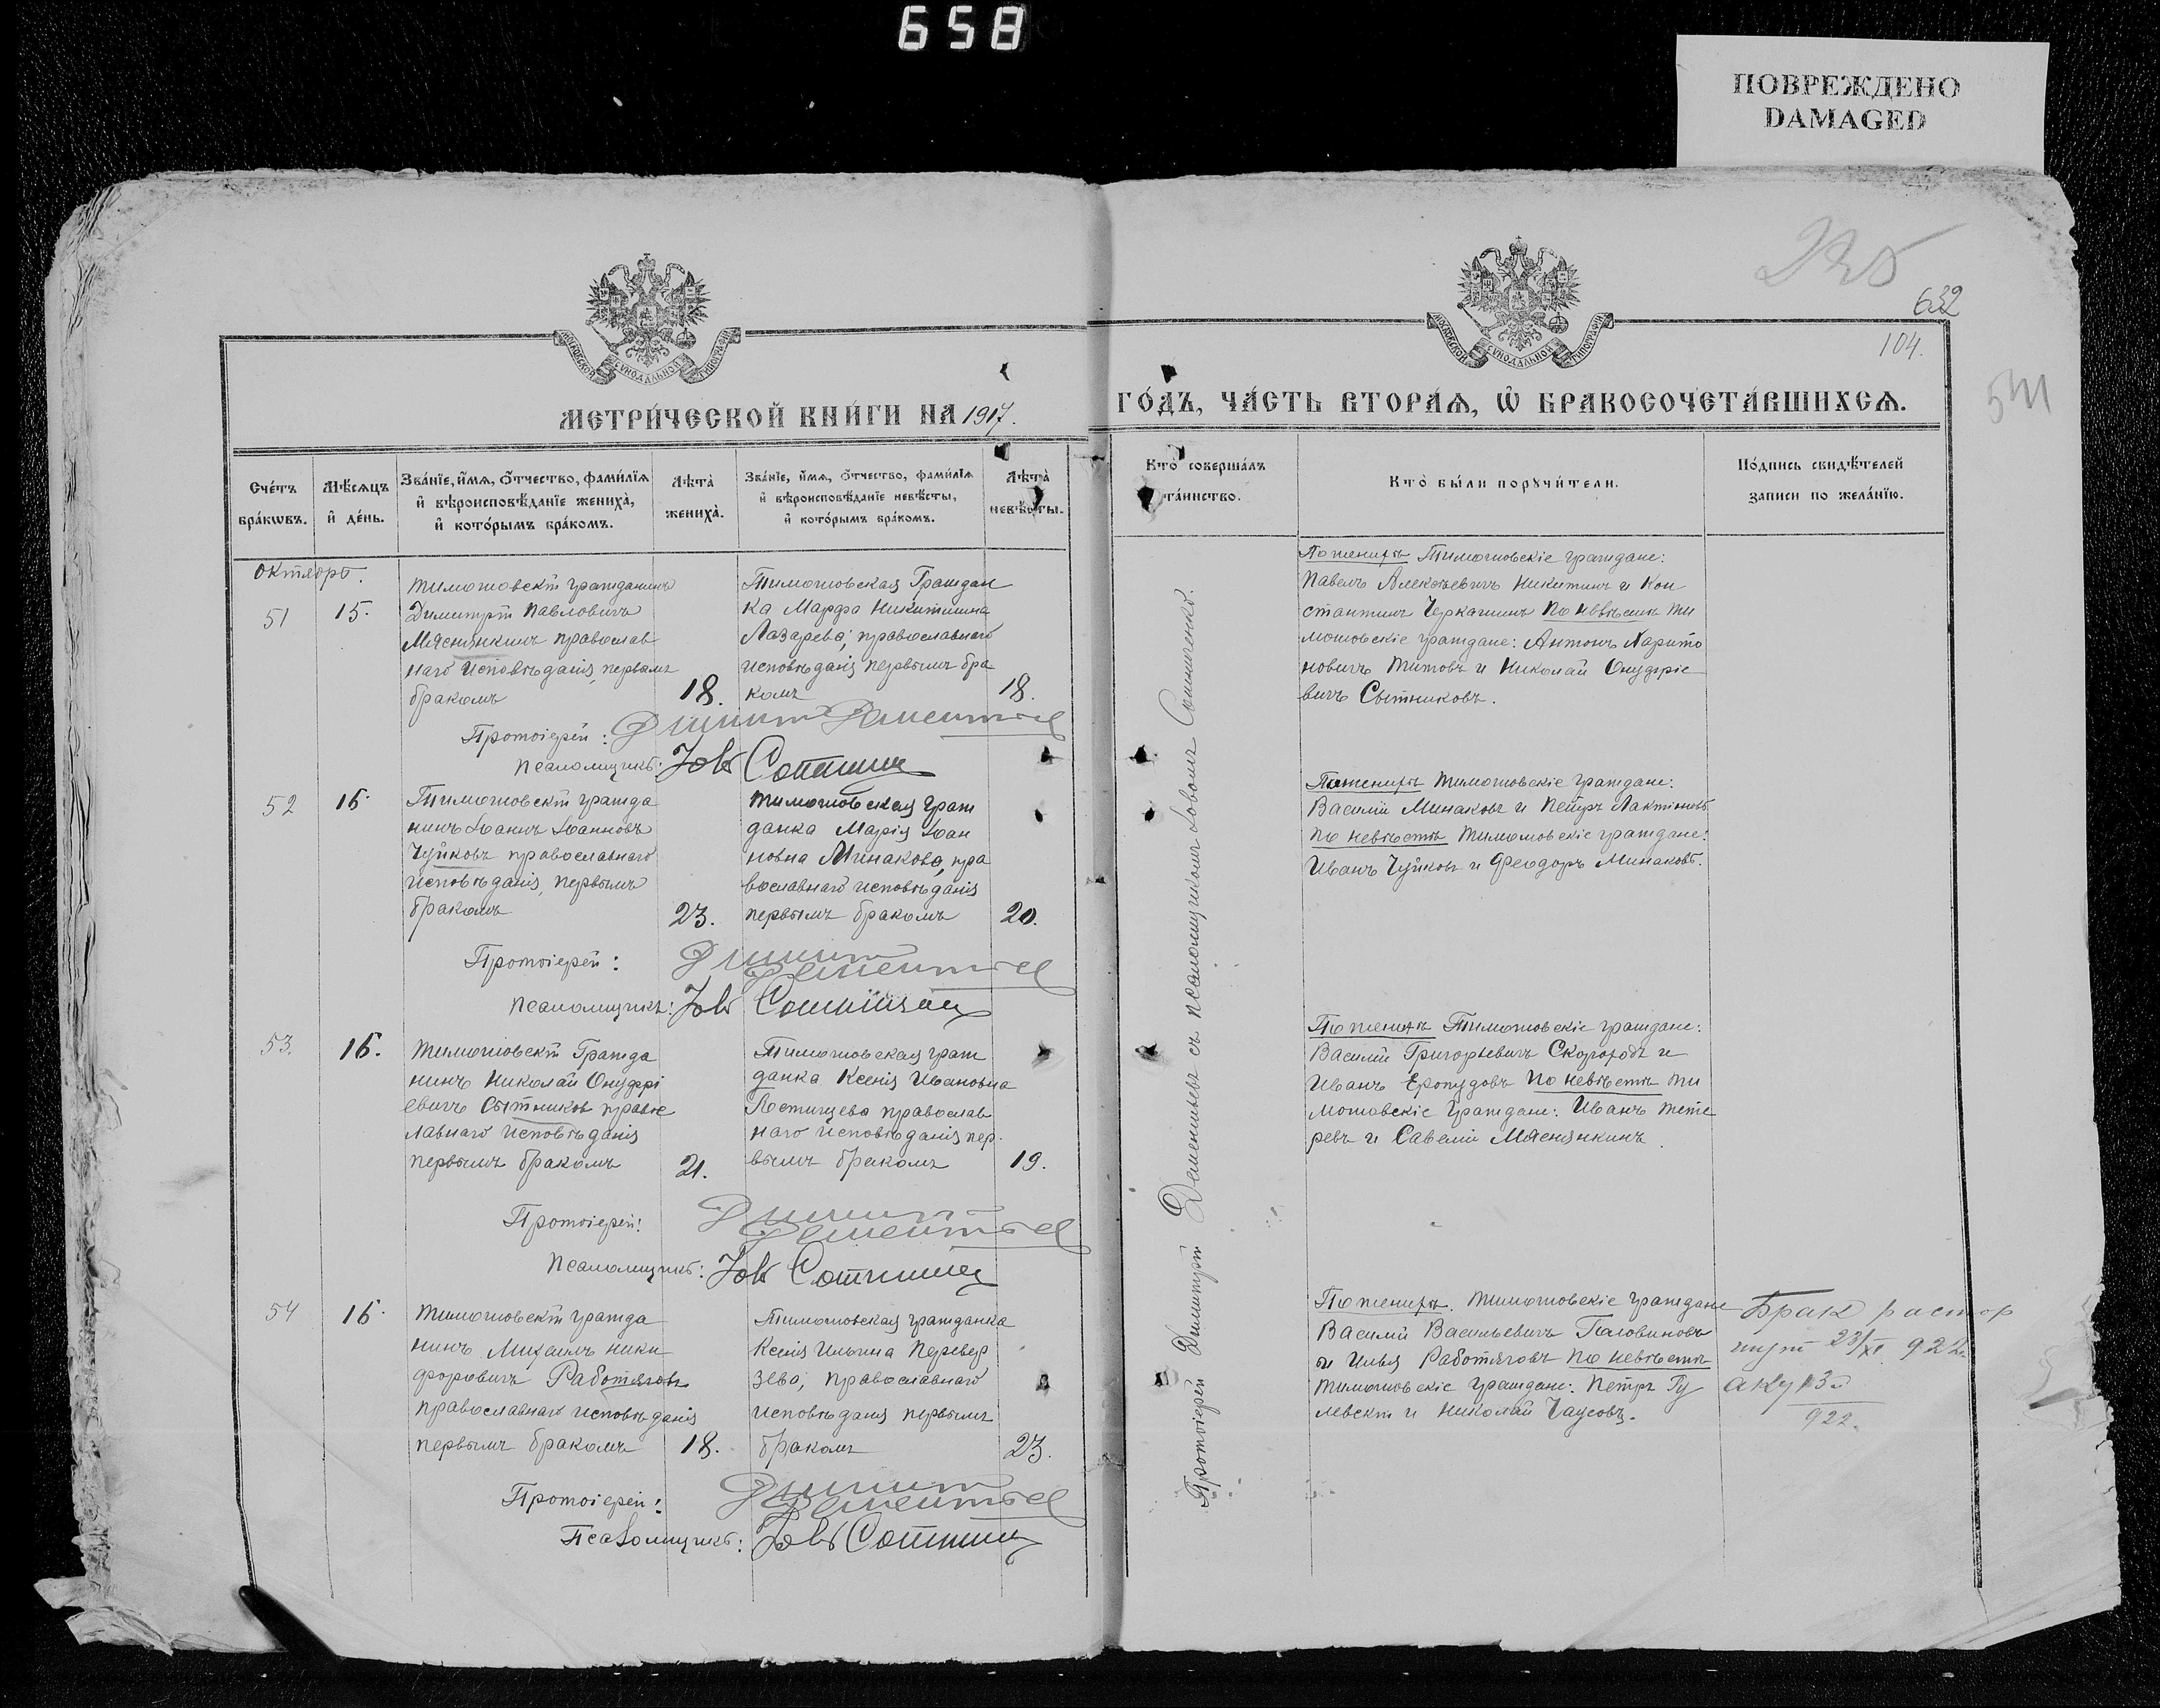 658
ПОВРЕЖДЕНО
DAMAGED
632
104.
МОСКОВСКОЙ СУНОДАЛЬНОЙ ТИПОГРАФІИ
МОСКОВСКОЙ СУНОДАЛЬНОЙ ТИПОГРАФІИ
МЕТРИ́ЧЕСКОЙ КНИ́ГИ НА 1917.
ГО́ДЪ, ЧА́СТЬ ВТОРА́Ѧ, Ѡ҆ БРАКОСОЧЕТА́ВШИХСѦ.
Сче́тъ бра́кѡвъ.
Мѣ́сѧцъ и҆ де́нь.
Зва́нїе, и҆́мѧ, ѻ҆́тчество, фами́лїѧ
и҆ вѣроисповѣ́данїе жениха̀,
и҆ кото́рымъ бра́комъ.
Лѣта̀ жениха̀.
Зва́нїе, и҆́мѧ, ѻ҆́тчество, фами́лїѧ
и҆ вѣроисповѣ́данїе невѣ́сты,
и҆ кото́рымъ бра́комъ.
Лѣта̀ невѣ́сты.
Кто̀ соверша́лъ
та́инство.
Кто̀ бы́ли порꙋчи́тели.
По́дпись свидѣ́телей
записи по жела́нїю.
Октябрь.
51
15.
Тимошовскій гражданинъ
Димитрій Павловичъ
Мясянкинъ православ
наго исповѣданія, первымъ
бракомъ
18.
Тимошовская Граждан
ка Марфа Никитишна
Лазарева, православнаго
исповѣданія первымъ бра
комъ
18.
По женихѣ Тимошовскіе граждане:
Павелъ Алексѣевичъ Никитинъ и Кон
стантинъ Черкашинъ по невѣстѣ Ти
мошовскіе граждане: Антонъ Харито
новичъ Титовъ и Николай Онуфріе
вичъ Сытниковъ.
Протоіерей: Димит Дементьев
Псаломщикъ: Іовъ
52
15.
Тимошовскій гражда
нинъ Іоаннъ Іоанновъ
Чуйковъ православнаго
исповѣданія, первымъ
бракомъ
23.
Тимошовская граж
данка Марія Іоан
новна Минакова, пра
вославнаго исповѣданія
первымъ бракомъ
20.
По женихѣ Тимошовскіе граждане:
Василій Минаковъ и Петръ Лактіоновъ
по невѣстѣ Тимошовскіе граждане:
Иванъ Чуйковъ и Феодоръ Минаковъ.
Протоіерей: Димит Дементьев
Псаломщикъ: Іовъ
53.
15.
Тимошовскій Гражда
нинъ Николай Онуфрі
евичъ Сытников правос
лавнаго исповѣданія
первымъ бракомъ
21.
Тимошовская граж
данка Ксенія Ивановна
православ
наго исповѣданія пер
вымъ бракомъ
19.
По женихѣ Тимошовскіе граждане:
Василій Григорьевичъ Скогородъ и
Иванъ по невѣстѣ Ти
мошовскіе граждане: Иванъ Тете
ревъ и Савелій Мясянкинъ.
Протоіерей: Димит Дементьев
Псаломщикъ: Іовъ
54
15.
Тимошовскій гражда
нинъ Михаилъ Ники
форовичъ Работяговъ
православнаго исповѣданія
первымъ бракомъ
18.
Тимошовская гражданка
Ксенія Ильина Перевер
зева, православнаго
исповѣданія первымъ
бракомъ
23.
По женихѣ. Тимошовскіе граждане
Василій Васильевичъ Головиновъ
и Илья Работяговъ по невѣстѣ
Тимошовскіе граждане: Петръ Гу
левскій и Николай Чаусовъ.
Брак растор
922
922.
Протоіерей: Димит Дементьев
Псаломщикъ: Іовъ
Протоіерей Димитрій Дементьевъ съ псаломщикомъ Іовомъ Сотниченко.